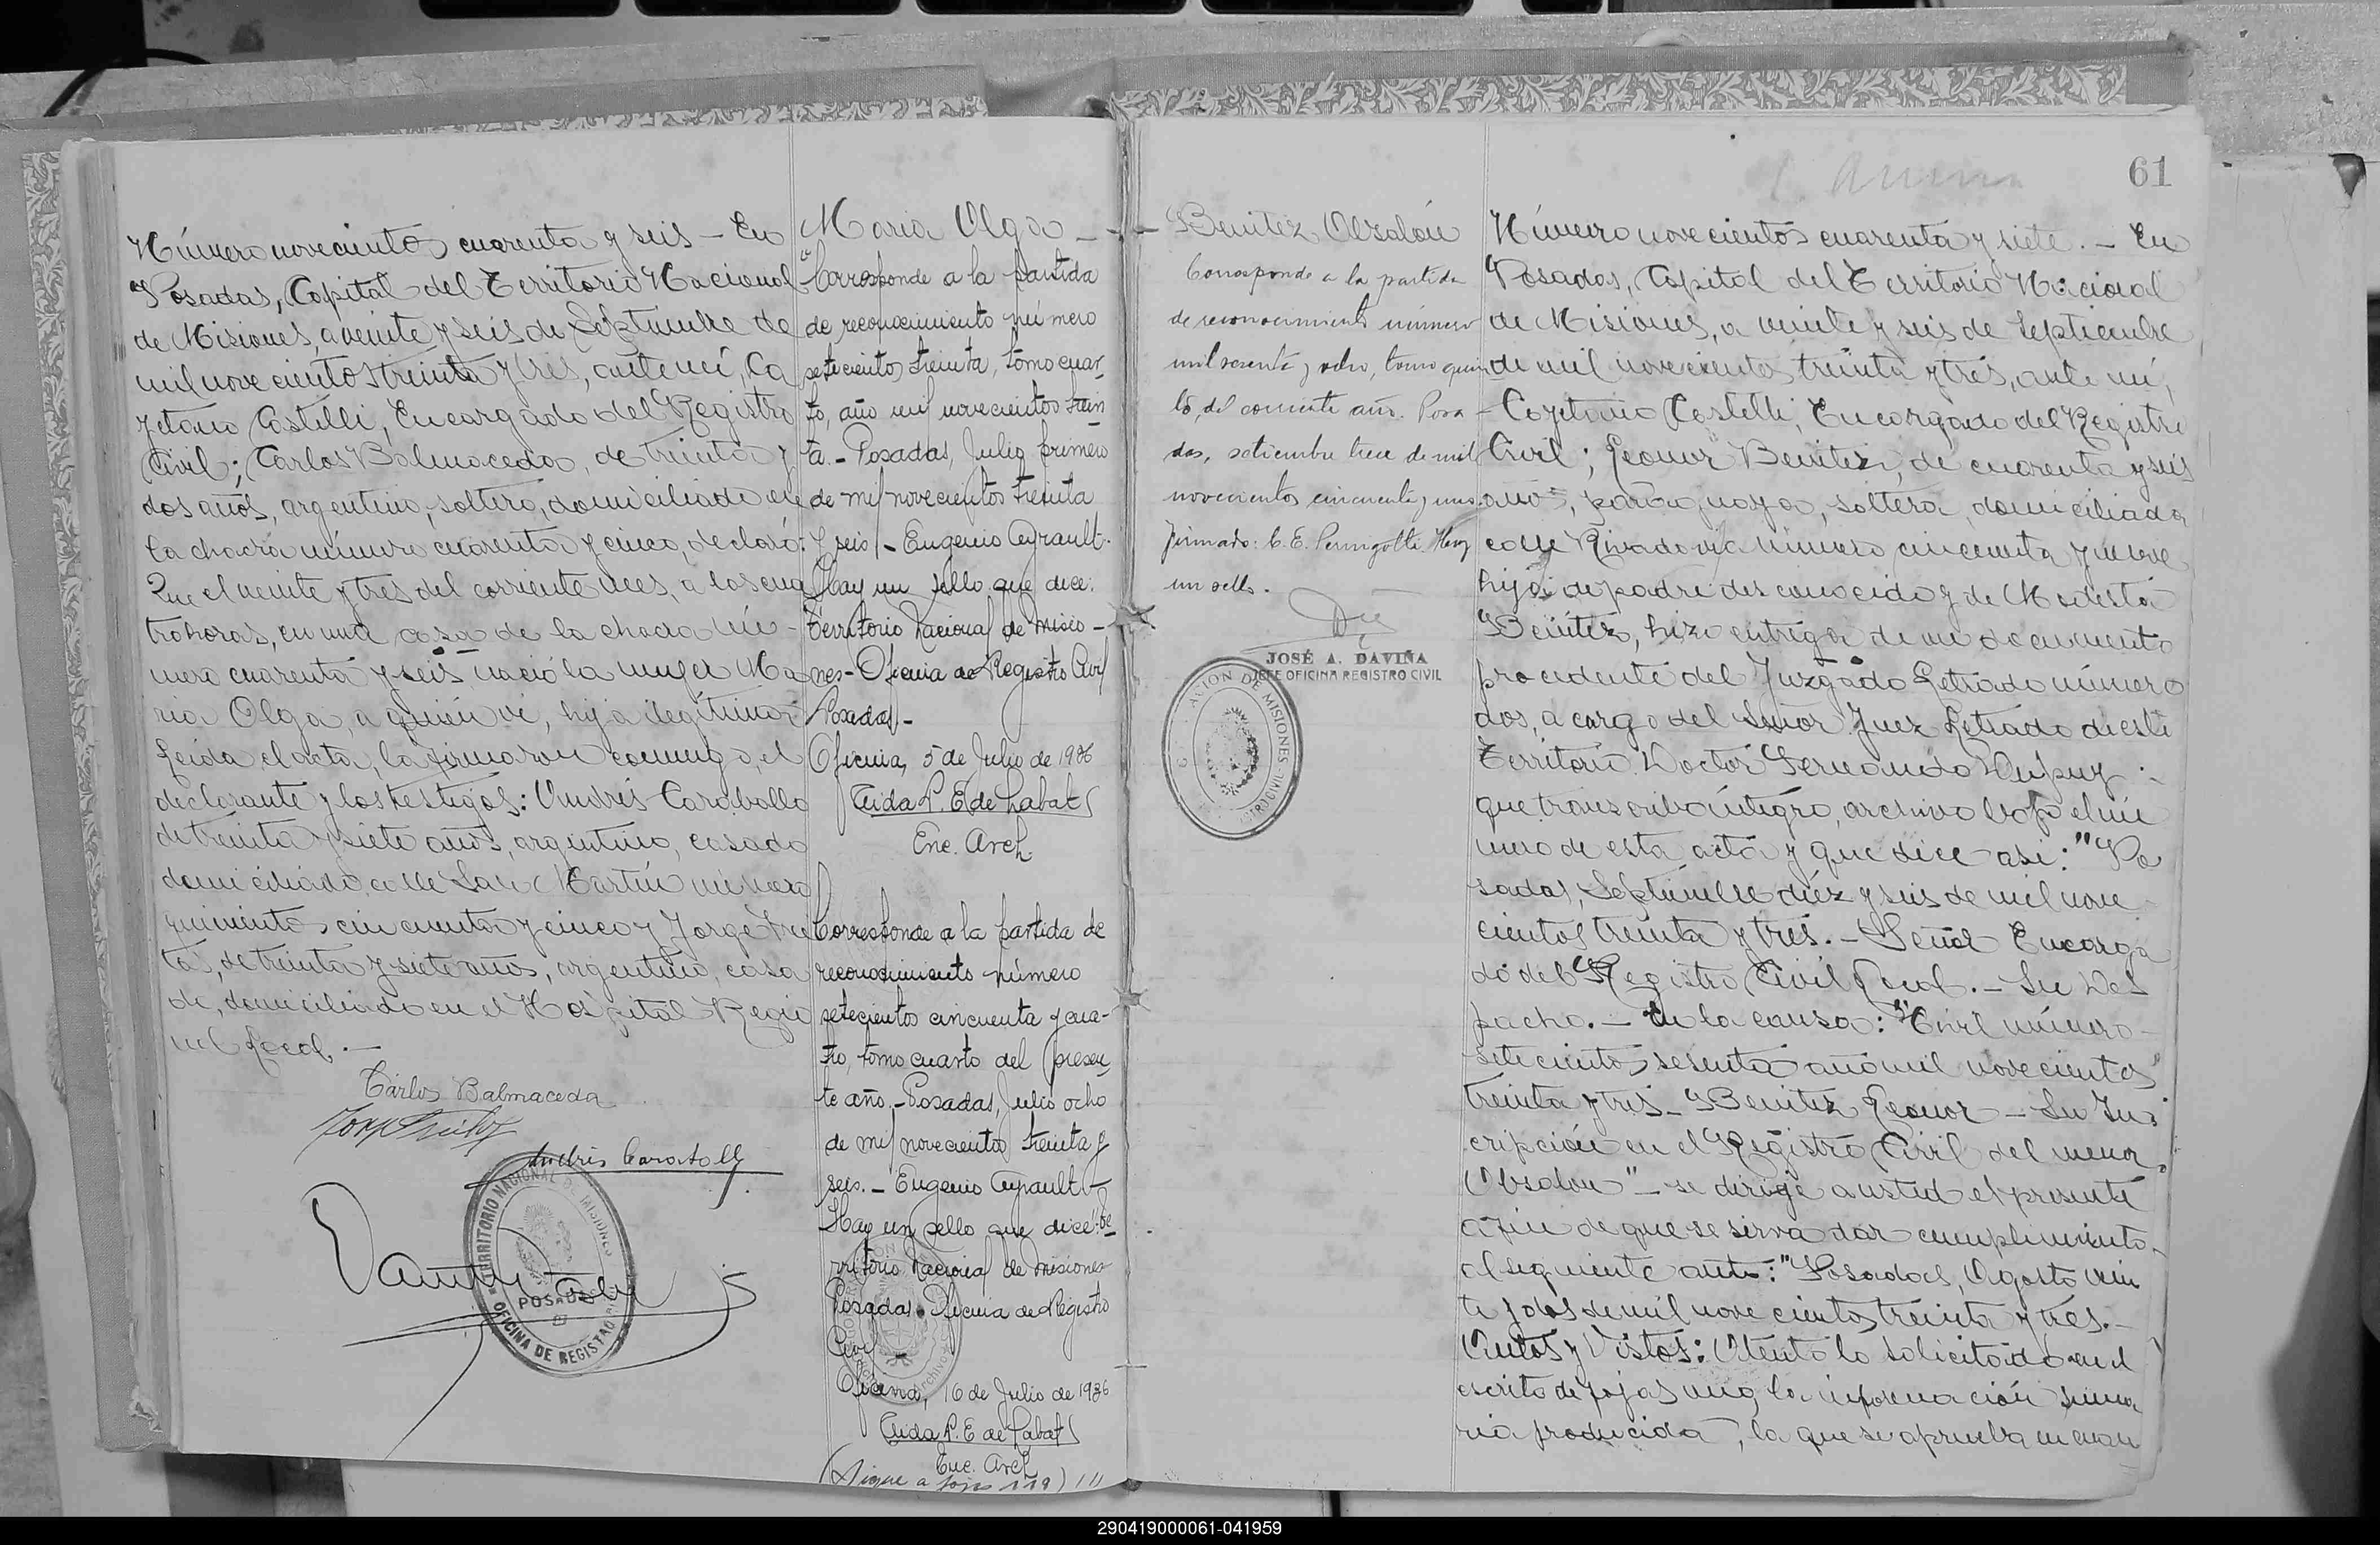 Número novecientos cuarenta y seis — En
Posadas, Capital del Territorio Nacional
de Misiones, a veinte y seis de Septiembre de
mil novecientos treinta y tres, ante mí, Ca
yetano Castelli, Encargado del Registro
Civil; Carlos Balmaceda, de treinta y
dos años, argentino, soltero, domiciliado en
la chacra número cuarenta y cinco, declaró:
Que el veinte y tres del corriente mes, a las cua
tro horas, en una casa de la chacra nú-
mero cuarenta y seis nació la mujer Ma
ria Olga, a quien vi, hija ilegítima
Leída el acta, la firmaron conmigo, el
declarante y los testigos: Andrés Caraballo
de treinta y siete años, argentino, casado
domiciliado calle San Martín número
quinientos cincuenta y cinco y Jorge
de treinta y siete años, argentino, casa
do, domiciliado en el Hospital Regio
nal local. —
Carlos Balmaceda
TERRITORIO NACIONAL DE MISIONES
POSADAS
OFICINA DE REGISTRO
Maria Olga —
"Corresponde a la partida
de reconocimiento número
setecientos treinta, tomo cuar-
to, año mil novecientos trein
ta. — Posadas, Julio primero
de mil novecientos treinta
y seis — Eugenio
Hay un sello que dice:
Territorio Nacional de Misio-
nes — Oficina de Registro Civil
Posadas —
Oficina, 5 de Julio de 1936
P. E de Labat
Enc. Arch.
Corresponde a la partida de
reconocimiento número
setecientos cincuenta y cua-
tro, tomo cuarto del presen-
te año. — Posadas, Julio ocho
de mil novecientos treinta y
seis. — Eugenio
Hay un sello que dice: Te-
rritorio Nacional de Misiones
Posadas. Oficina de Registro
Civil —
Oficina, 16 de Julio de 1936
P. E de Labat
Enc. Arch
(Sigue a fojas 119) ///
61
Benitez Absalón
Corresponde a la partida
de reconocimiento número
mil sesenta y ocho, tomo quin
to, del corriente año. Posa
das, setiembre trece de mil
novecientos cincuenta y uno.
Firmado: C. E. Hay
un sello.
JOSÉ A. DAVIÑA
JEFE OFICINA REGISTRO CIVIL
Número novecientos cuarenta y siete. — En
Posadas, Capital del Territorio Nacional
de Misiones, a veinte y seis de Septiembre
de mil novecientos treinta y tres, ante mí,
Cayetano Castelli, Encargado del Registro
Civil; Leonor Benitez, de cuarenta y seis
años, paraguaya, soltera, domiciliada
calle Rivadavia número cincuenta y nueve
hija de padre desconocido y de Modesta
Benítez, hizo entrega de un documento
procedente del Juzgado Letrado número
dos, a cargo del Señor Juez Letrado de este
Territorio Doctor Fernando Dupuy
que transcribo íntegro, archivo bajo el nú
mero de esta acta y que dice así: "Po
sadas, Septiembre diez y seis de mil nove
cientos treinta y tres. — Señor Encarga
do del Registro Civil local. — Su Des
pacho. — En la causa: "Civil número
setecientos sesenta año mil novecientos
treinta y tres — Benitez Leonor — Su Ins
cripción en el Registro Civil del menor
Absalon" — se dirige a usted el presente
a fin de que se sirva dar cumplimiento
al siguiente auto: "Posadas, Agosto vein
te y dos de mil novecientos treinta y tres. —
Autos y Vistos: Atento lo solicitado en el
escrito de fojas uno, la información suma
ria producida, la que se aprueba en cuan
290419000061-041959